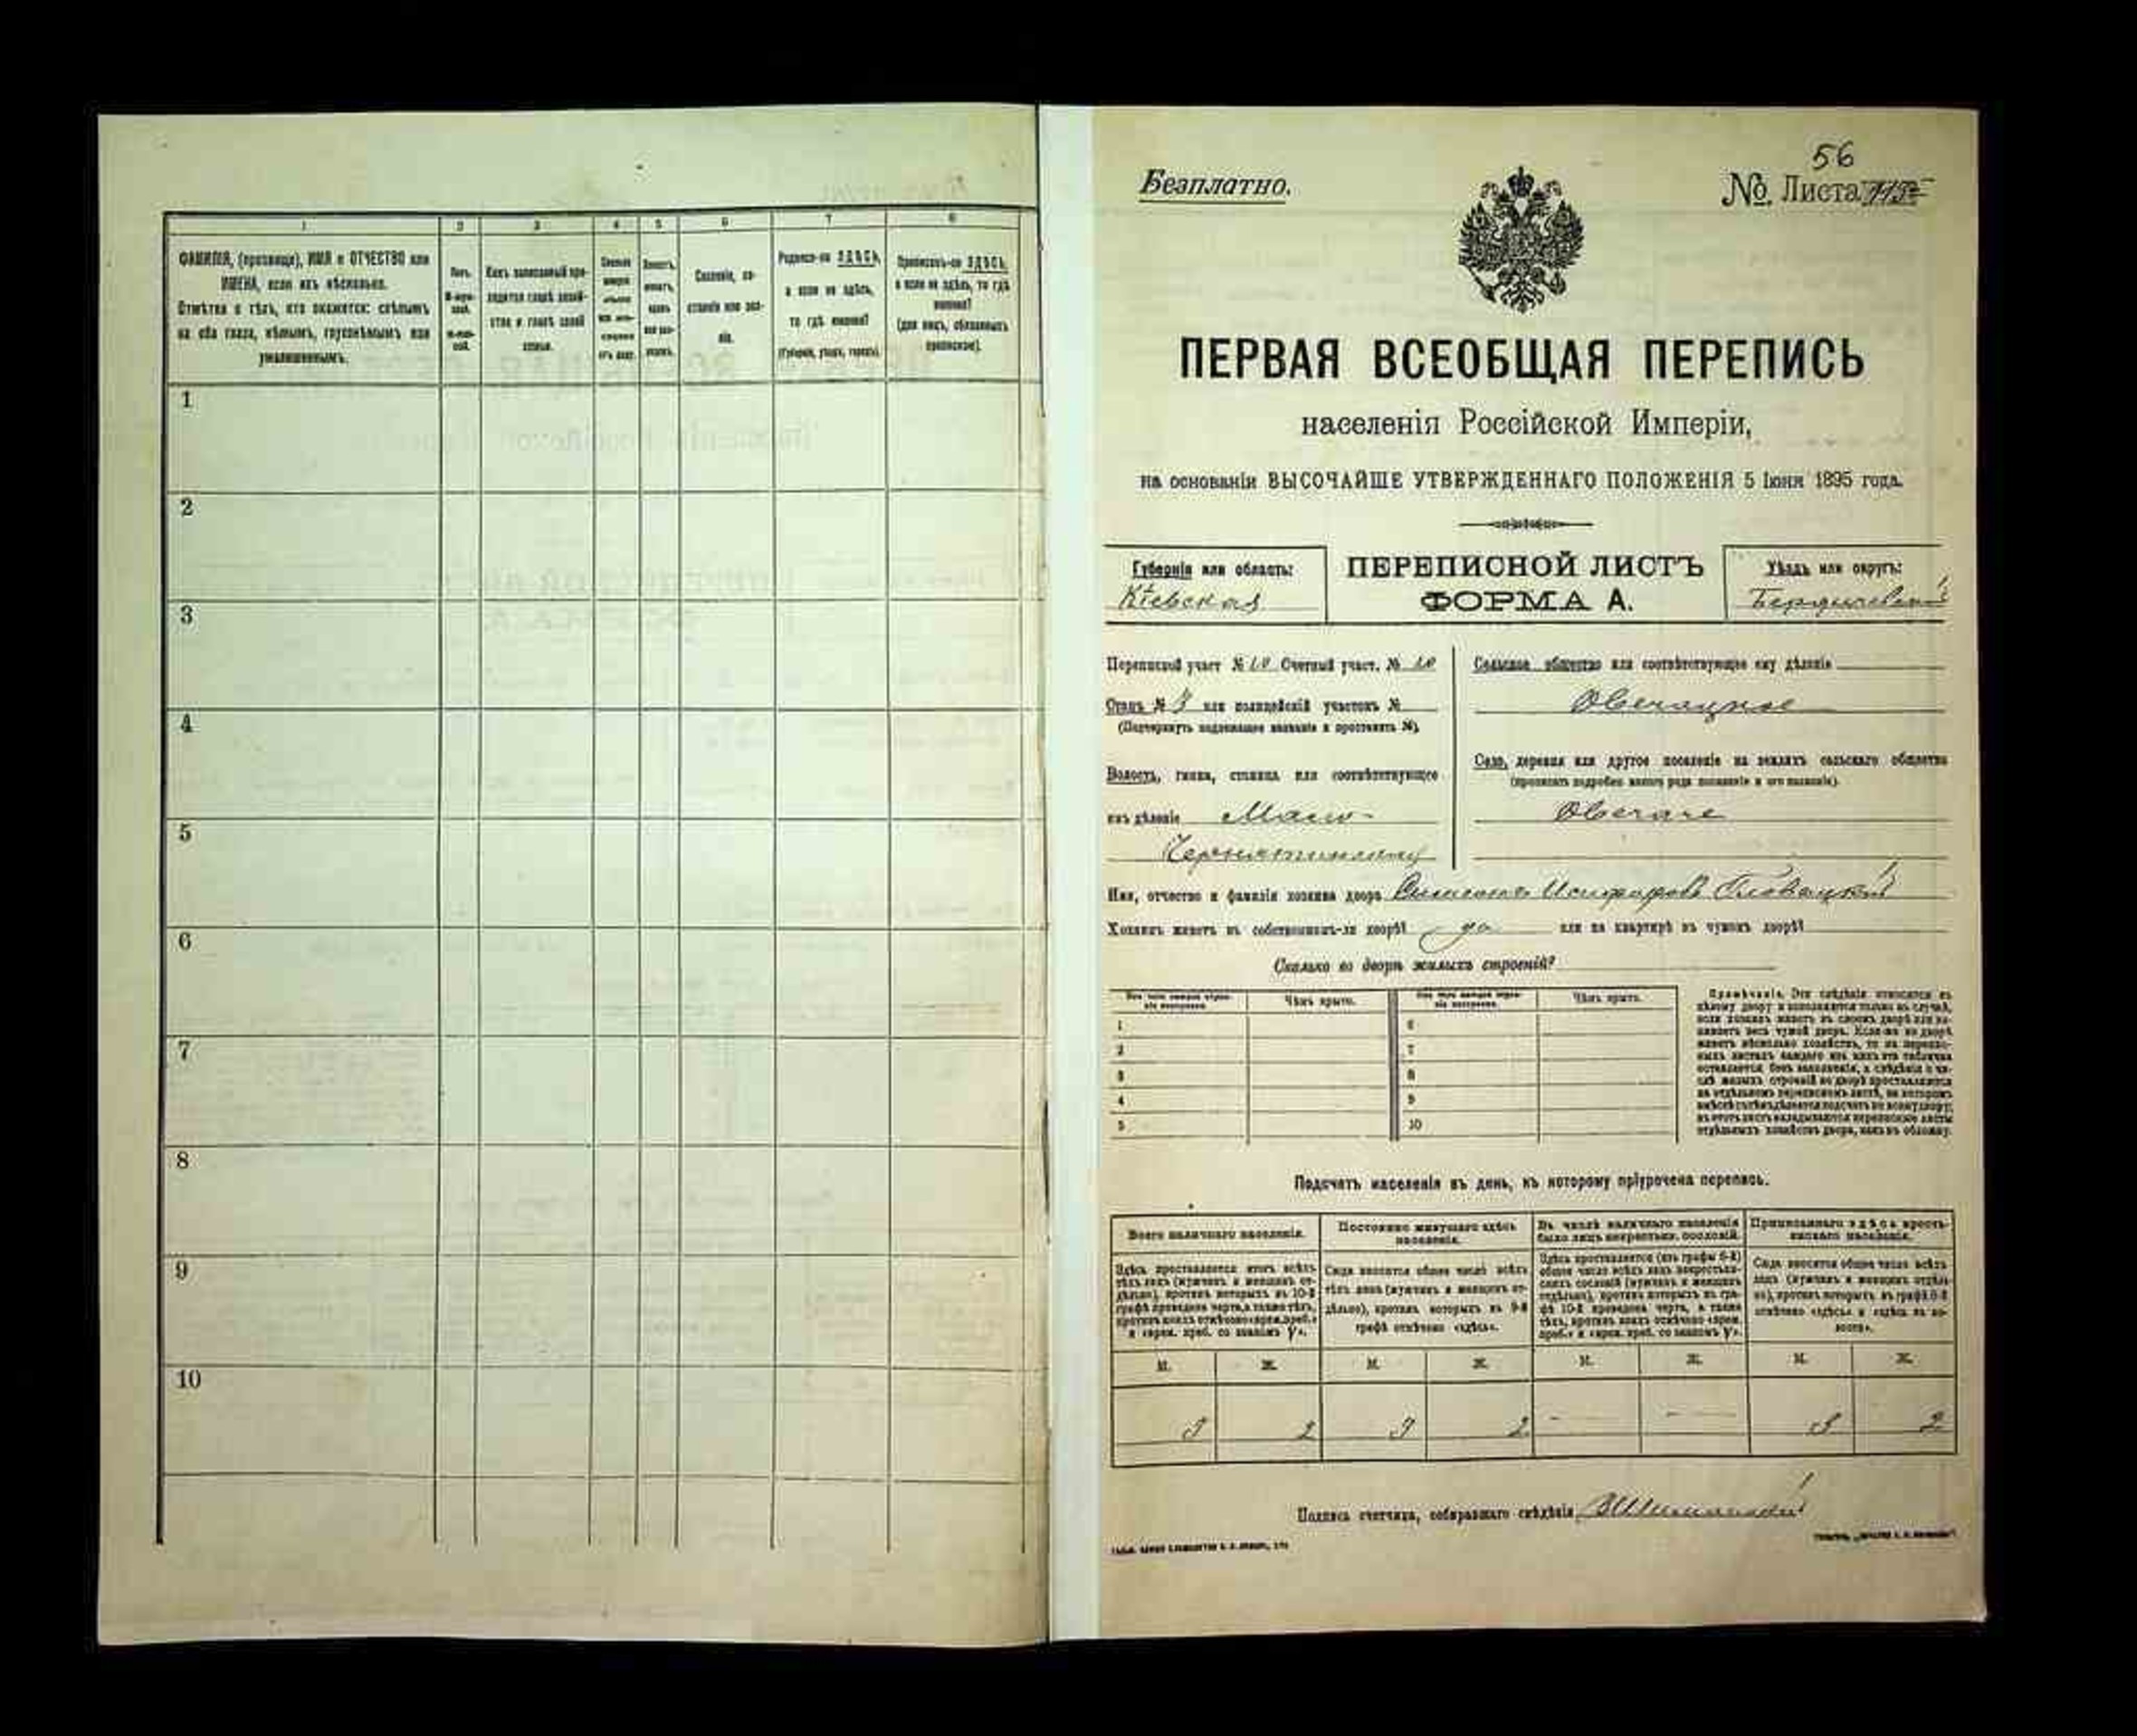 1 2 3 4 5 6 7 8
ФАМИЛІЯ, (прозвище), ИМЯ и ОТЧЕСТВО или
ИМЕНА, если ихъ нѣсколько.
Отмѣтка о тѣхъ, кто окажется: слѣпымъ
на оба глаза, нѣмымъ, глухонѣмымъ или
умалишеннымъ.
Полъ.
Какъ записанный при-
ходится главѣ хозяй-
ства и главѣ своей
семьи.
Сословіе, со-
стояніе или зва-
ніе.
Родился-ли ЗДѢСЬ,
а если не здѣсь,
то гдѣ именно?
(Губернія, уѣздъ, городъ).
Приписанъ-ли ЗДѢСЬ,
а если не здѣсь, то гдѣ
именно?
(для лицъ, обязанныхъ
припискою).
1
2
3
4
5
6
7
8
9
10
56
Безплатно.
№ Листа
ПЕРВАЯ ВСЕОБЩАЯ ПЕРЕПИСЬ
населенія Россійской Имперіи,
на основаніи ВЫСОЧАЙШЕ УТВЕРЖДЕННАГО ПОЛОЖЕНІЯ 5 Іюня 1895 года.
Губернія или область:
Кіевская
ПЕРЕПИСНОЙ ЛИСТЪ
ФОРМА А.
Уѣздъ или округъ:
Бердичевскій
Переписной участ № 10 Счетный участ. № 10
Станъ № 3 или полицейскій участокъ №
(Подчеркнуть надлежащее названіе и проставить №).
Волость, гмина, станица или соотвѣтствующее
имъ дѣленіе Мало-
Чернятинская
Сельское общество или соотвѣтствующее ему дѣленіе
Овечацкое
Село, деревня или другое поселеніе на земляхъ сельскаго общества
(прописать подробно какого рода поселеніе и его названіе).
Овечаче
Имя, отчество и фамилія хозяина двора
Хозяинъ живетъ въ собственномъ-ли дворѣ? да или на квартирѣ въ чужомъ дворѣ?
Сколько во дворѣ жилыхъ строеній?
Чѣмъ крыто. Чѣмъ крыто.
1 6
2 7
3 8
4 9
5 10
Примѣчаніе. Эти свѣдѣнія относятся къ
цѣлому двору и заполняются только въ случаѣ,
если хозяинъ живетъ въ своемъ дворѣ или на-
нимаетъ весь чужой дворъ. Если-же во дворѣ
живетъ нѣсколько хозяйствъ, то на перепис-
ныхъ листахъ каждаго изъ нихъ эта табличка
оставляется безъ заполненія, а свѣдѣнія о чи-
слѣ жилыхъ строеній во дворѣ проставляются
на отдѣльномъ переписномъ листѣ, на которомъ
вмѣстѣ съ тѣмъ дѣлается подсчетъ по всему двору;
въ этотъ листъ вкладываются переписные листы
отдѣльныхъ хозяйствъ двора, какъ въ обложку.
Подсчетъ населенія въ день, къ которому пріурочена перепись.
Всего наличнаго населенія.
Здѣсь проставляется итогъ всѣхъ
тѣхъ лицъ (мужчинъ и женщинъ от-
дѣльно), противъ которыхъ въ 10-й
графѣ проведена черта, а также тѣхъ,
противъ коихъ отмѣчено «врем. преб.»
и «врем. преб. со знакомъ V».
Постоянно живущаго здѣсь
населенія.
Сюда вносится общее число всѣхъ
тѣхъ лицъ (мужчинъ и женщинъ от-
дѣльно), противъ которыхъ въ 9-й
графѣ отмѣчено «здѣсь».
Въ числѣ наличнаго населенія
было лицъ некрестьянск. сословій.
Здѣсь проставляется (изъ графы 6-й)
общее число всѣхъ лицъ некрестьян-
скихъ сословій (мужчинъ и женщинъ
отдѣльно), противъ которыхъ въ гра-
фѣ 10-й проведена черта, а также
тѣхъ, противъ коихъ отмѣчено «врем.
преб.» и «врем. преб. со знакомъ V».
Приписаннаго здѣсь кресть-
янскаго населенія.
Сюда вносится общее число всѣхъ
лицъ (мужчинъ и женщинъ отдѣль-
но), противъ которыхъ въ графѣ 8-й
отмѣчено «здѣсь» и «здѣсь въ во-
лости».
М. Ж. М. Ж. М. Ж. М. Ж.
3 2 3 2 - - 3 2
Подпись счетчика, собиравшаго свѣдѣнія